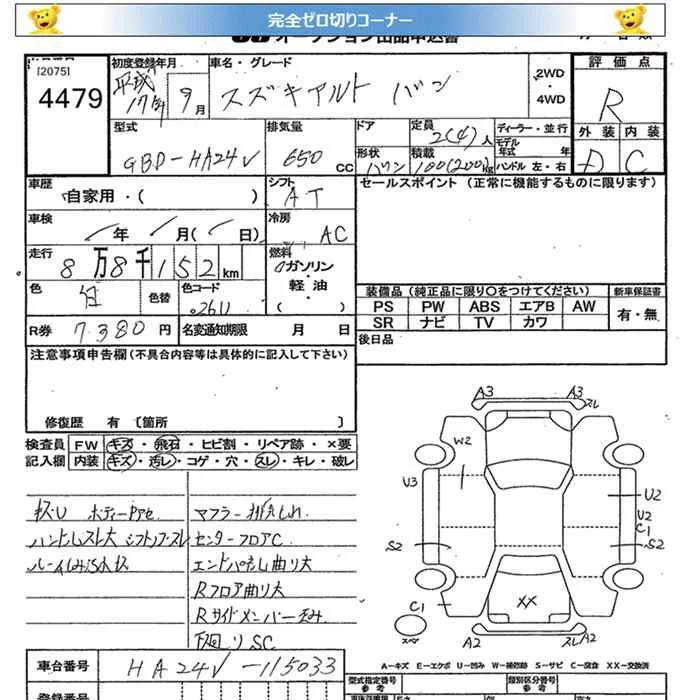 完全ゼロ切りコーナー
オークション出品申込書
[2075]
4479
初度登録年月
平成17年 9月
車名・グレード
スズキアルト バン
2WD
・
4WD
評価点
R
外装 内装
D C
型式
GBD-HA24V
排気量
650 CC
ドア
定員
2(4)人
形状
バン
積載
100(200)kg
ディーラー・並行
モデル年式 年
ハンドル 左・右
車歴
自家用・( )
シフト
AT
セールスポイント (正常に機能するものに限ります)
車検
年 月( 日)
冷房
AC
走行
8万8千152km
燃料
ガソリン・軽油・( )
色
白
色替
色コード
02611
装備品(純正品に限り○をつけてください)
新車保証書
PS PW ABS エアB AW
SR ナビ TV カワ
有・無
R券 7,380円
名変通知期限 月 日
後日品
注意事項申告欄(不具合内容等は具体的に記入して下さい)
修復歴 有〔箇所 〕
検査員記入欄
FW キズ・飛石・ヒビ割・リペア跡・×要
内装 キズ・汚レ・コゲ・穴・スレ・キレ・破レ
マフラー排気もれ
ハンドルスレ大 シフトノブスレ
センターフロアC
エンドパネル曲り大
Rフロア曲り大
Rサイドメンバー歪み
下回りSC
A3 A3
スレ
W2
U3
U2
U2
C1
S2
S2
C1
XX
スペア
A2 A2
スレ
A-キズ E-エクボ U-凹み W-補修跡 S-サビ C-腐食 XX-交換済
車台番号
HA24V-115033
型式指定番号
参考
類別区分番号
参考
登録番号